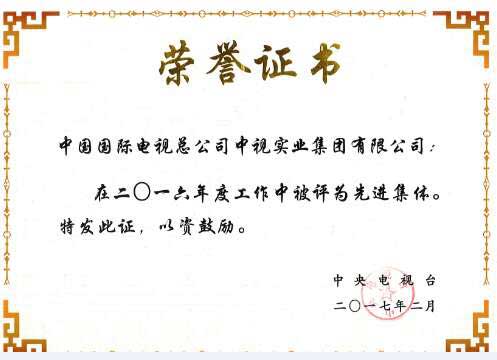 荣誉证书
中国国际电视总公司中视实业集团有限公司：
在二〇一六年度工作中被评为先进集体。
特发此证，以资鼓励。
中央电视台
二〇一七年二月